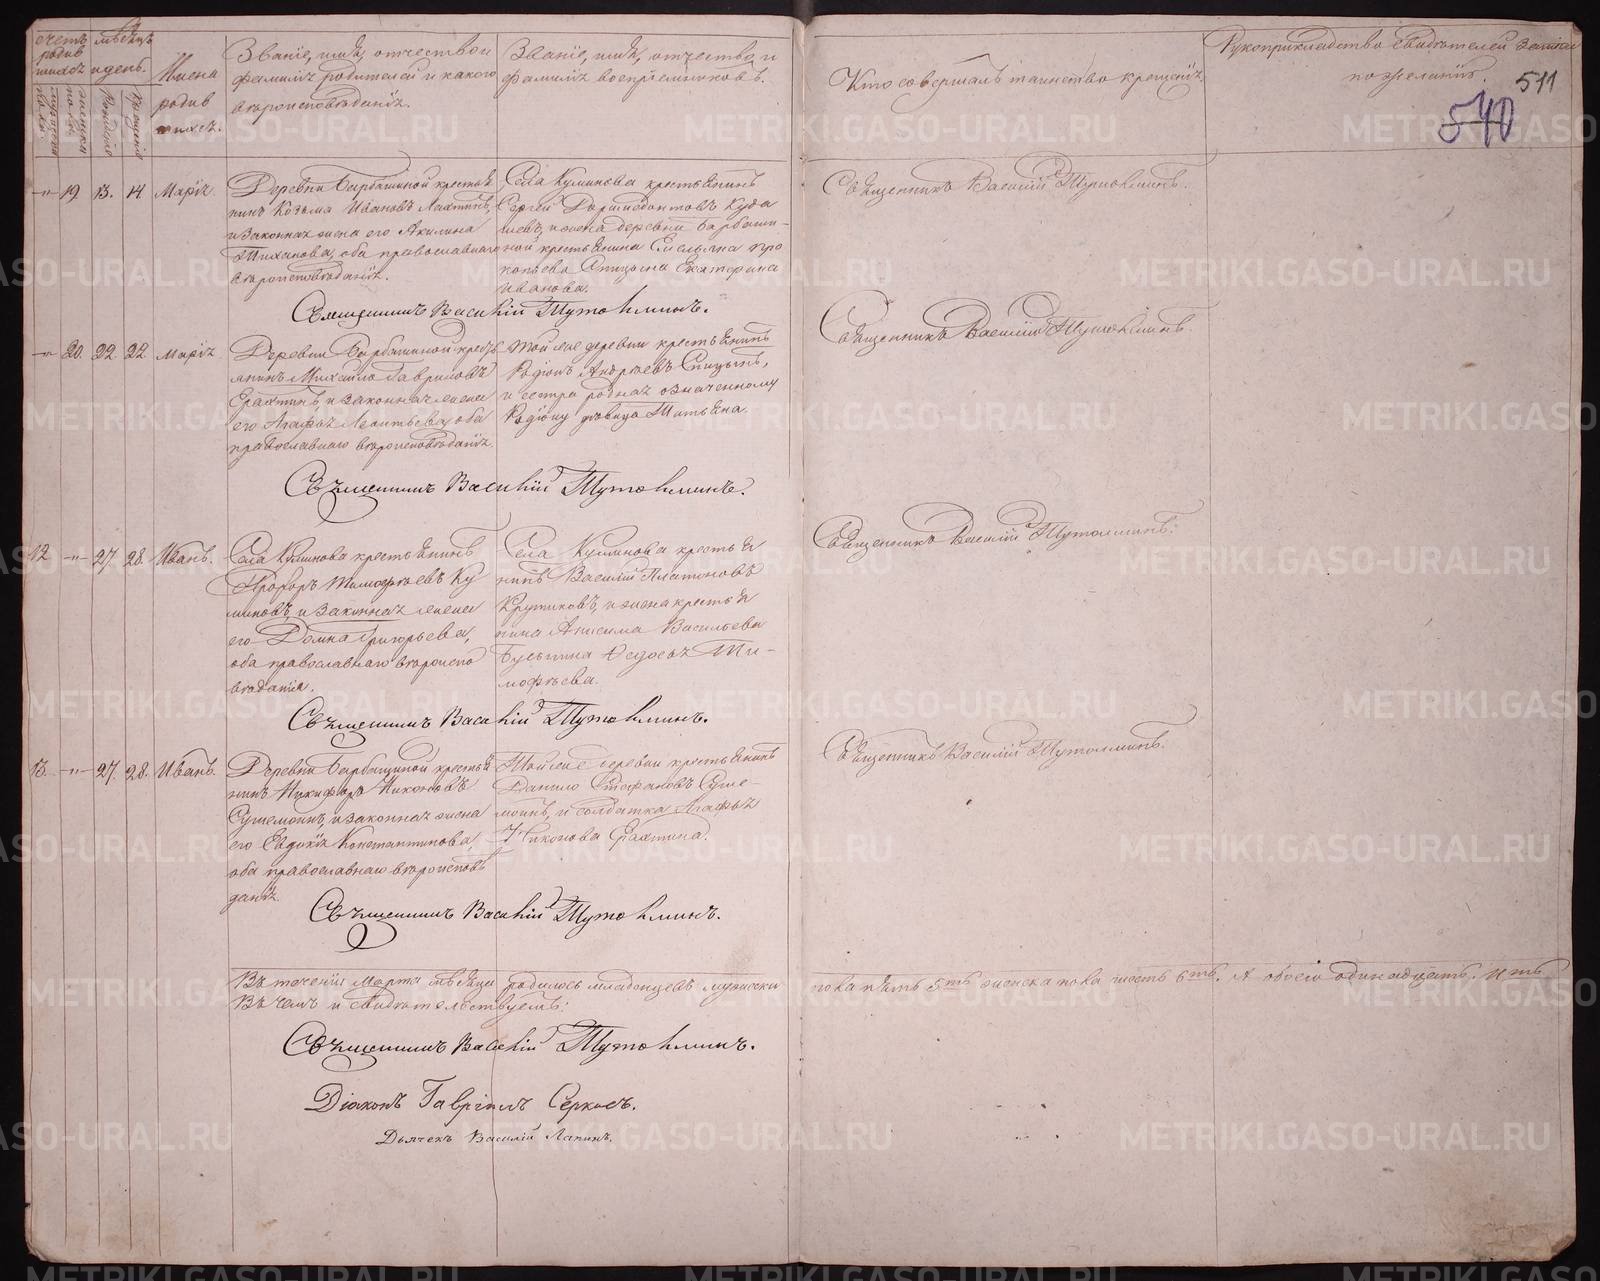 Счетъ родив шихся
мѣсяцъ и день.
мужеска по ла.
женска по ла.
Рожденія
Крещенія
Имена родив шихся.
Званіе, имя, отчество и
фамилія родителей и какого
вѣроисповѣданія.
Званіе, имя, отчество и
фамилія воспріемниковъ.
Кто совершалъ таинство крещенія.
Рукоприкладство свидѣтелей записи
по желанію.
511
540
-"- 19 13. 14 Марія
Деревни Барбашиной крестья
нинъ Козьма Ивановъ
и законная жена его Акилина
Тиханова, оба православнаго
вѣроисповѣданія.
Села Куминова крестьянинъ
Сергей
и жена деревни Барбаши-
ной крестьянина Емельяна Про
копьева Спицына Екатерина
Иванова.
Священникъ Василій Тутолминъ.
Священникъ Василій Тутолминъ.
-"- 20. 22. 22 Марія
Деревни Барбашиной кресть
янинъ Михайло Гавриловъ
Ерахтинъ и законная жена
его Агафья Леонтьева, оба
православнаго вѣроисповѣданія.
Той же деревни крестьянинъ
Родіонъ Андреевъ Спицынъ,
и сестра родная означенному
Родіону дѣвица Татьяна.
Священникъ Василій Тутолминъ.
Священникъ Василій Тутолминъ.
12. -"- 27. 28. Иванъ.
Села Куминова крестьянинъ
Прохоръ Тимофѣевъ Ку
миновъ, и законная жена
его Домна Григорьева,
оба православнаго вѣроиспо
вѣданія.
Села Куминова крестья
нинъ Василій Платоновъ
Крутиковъ, и жена крестья
нина Анисима Васильева
Федосья Ти-
мофѣева.
Священникъ Василій Тутолминъ.
Священникъ Василій Тутолминъ.
13. -"- 27. 28. Иванъ.
Деревни Барбашиной крестья
нинъ Никифоръ Никоновъ
и законная жена
его Евдокія Константинова,
оба православнаго вѣроисповѣ
данія.
Той же деревни крестьянинъ
Данило Стефановъ
и солдатка Агафья
Никонова Ерахтина.
Священникъ Василій Тутолминъ.
Священникъ Василій Тутолминъ.
Въ теченіи Марта мѣсяца родилось младенцевъ мужеска
пола пять 5ть женска пола шесть 6ть. А обоего одинадцать. итъ
Въ чемъ и свидѣтельствуемъ:
Священникъ Василій Тутолминъ.
Діаконъ Гавріилъ Серковъ.
Дьячекъ Василій Лапинъ.
METRIKI.GASO-URAL.RU